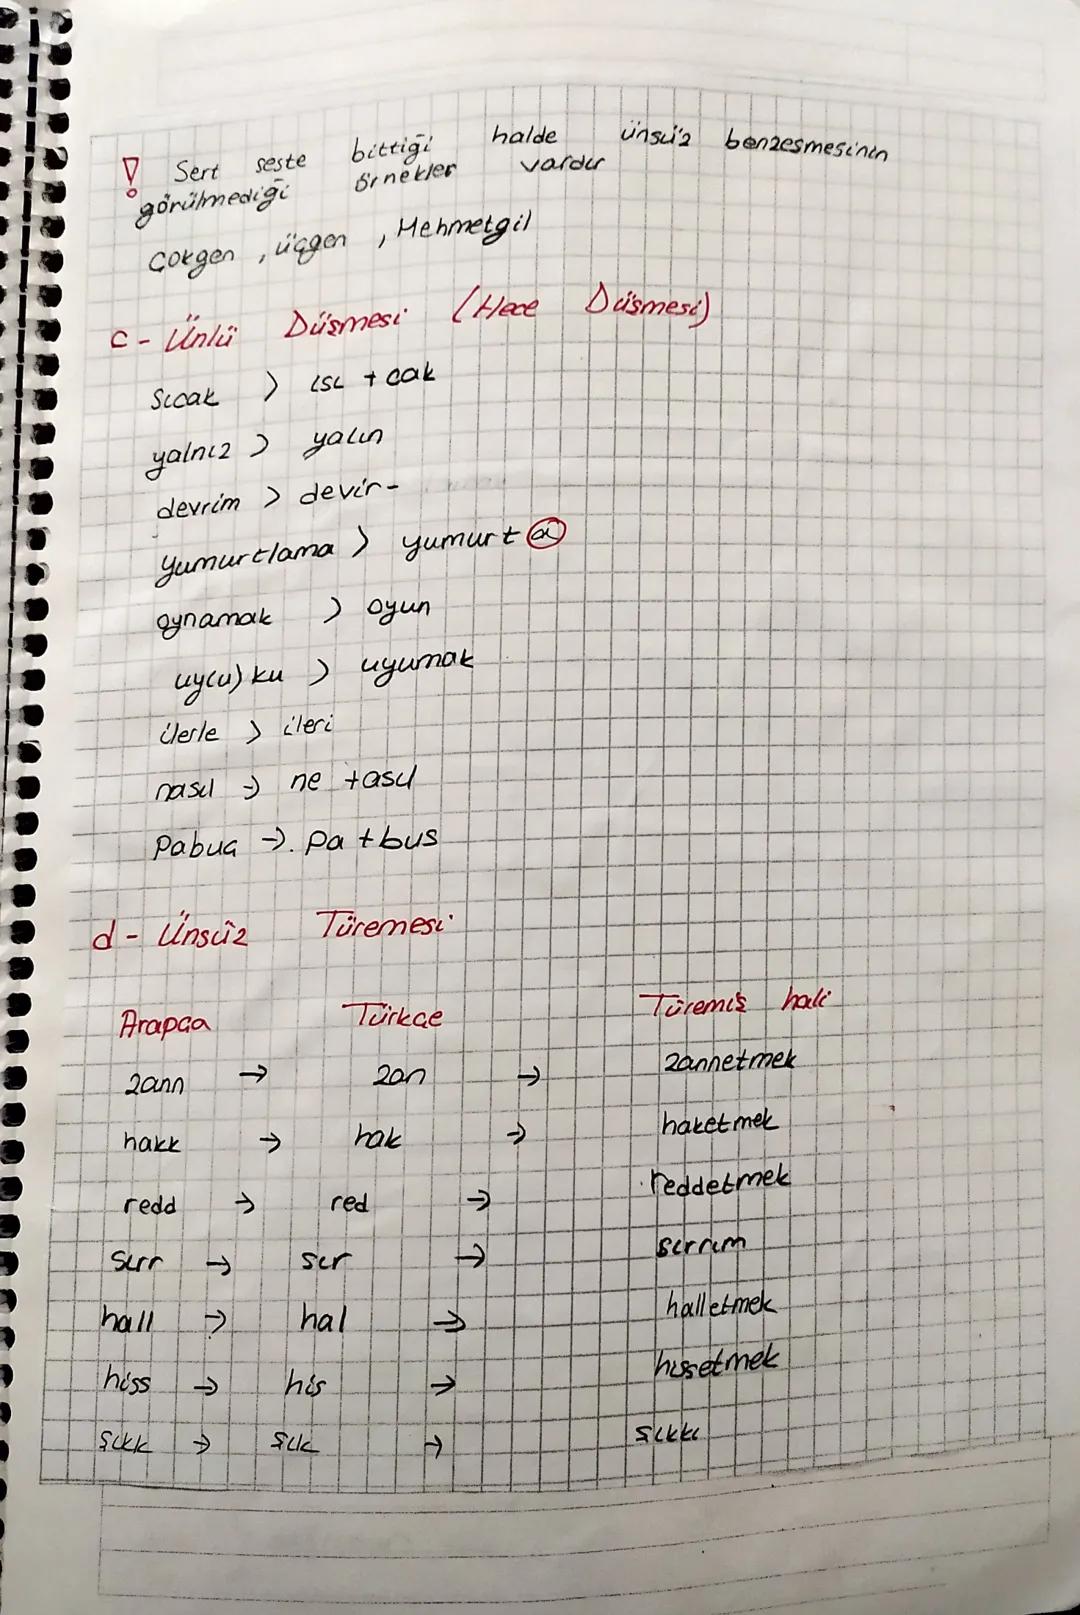 ! Sert seste bittiği halde ünsüz benzesmesinin
görülmediği örnekler vardır
Çokgen , üçgen , Mehmetgil
c - Ünlü Düşmesi (Hece Düşmesi)
Sıcak > ısı + cak
yalnız > yalın
devrim > devir-
yumurtlama > yumurt a
oynamak > oyun
uy(u) ku > uyumak
ilerle > ileri
nasıl → ne + asıl
Pabuç →. Pa + bus
d - Ünsüz Türemesi
Arapça Türkçe Türemiş hali
zann → zan → zannetmek
hakk → hak → haketmek
redd → red → reddetmek
sırr → sır → sırrım
hall → hal → halletmek
hiss → his → hissetmek
şıkk → şık → şıkkı